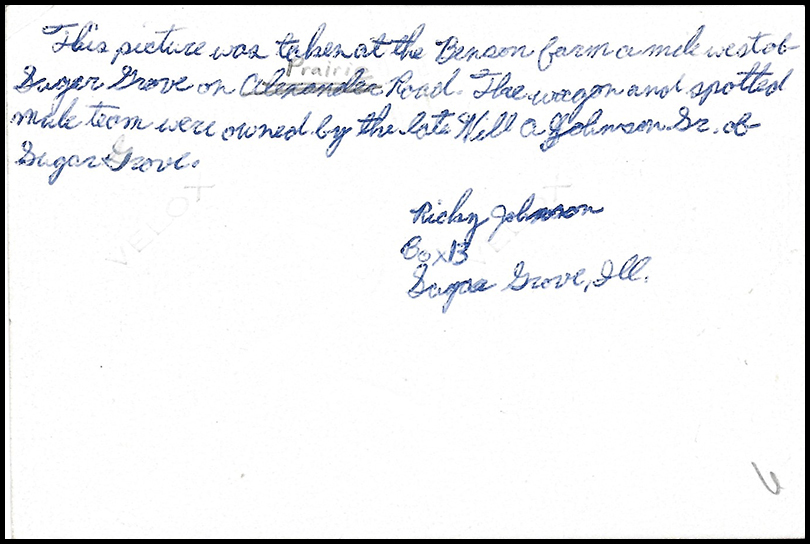 This picture was taken at the Benson farm a mile west of
Prairie
Sugar Grove on Alexander Road. The wagon and spotted
mule team were owned by the late Will A Johnson Sr. of
Sugar Grove.
Ricky Johnson
Box 13
Sugar Grove, Ill.
VELOX